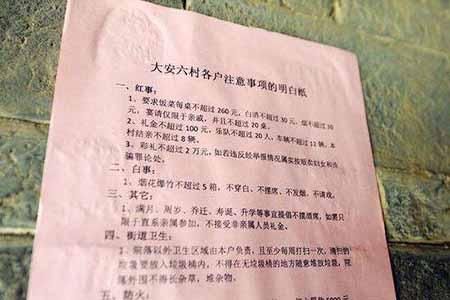 大安六村各户注意事项的明白纸
一、红事：
1、要求饭菜每桌不超过 260 元，白酒不超过 30 元，烟不超过 30
元，宴请仅限于亲戚，并且不超过 20 桌。
2、礼金不超过 100 元，乐队不超过 20 人，车辆不超过 12 辆，本
村结亲不超过 8 辆。
3、彩礼不超过 2 万元，如若违反经举报情况属实按贩卖妇女和诈
骗罪论处。
二、白事：
1、烟花爆竹不超过 5 箱，不穿白、不摆席、不发烟、不请戏。
三、其它：
1、满月、周岁、乔迁、寿诞、升学等事宜提倡不摆酒席，如果只
限于直系亲属参加，不接受非亲属人员礼金。
四、街道卫生：
1、院落以外卫生区域由本户负责，且至少每周打扫一次，清扫的
垃圾要放入垃圾桶内，不得在无垃圾桶的地方随意堆放垃圾，院
落外围不得长杂草，堆杂物。
五、防火：